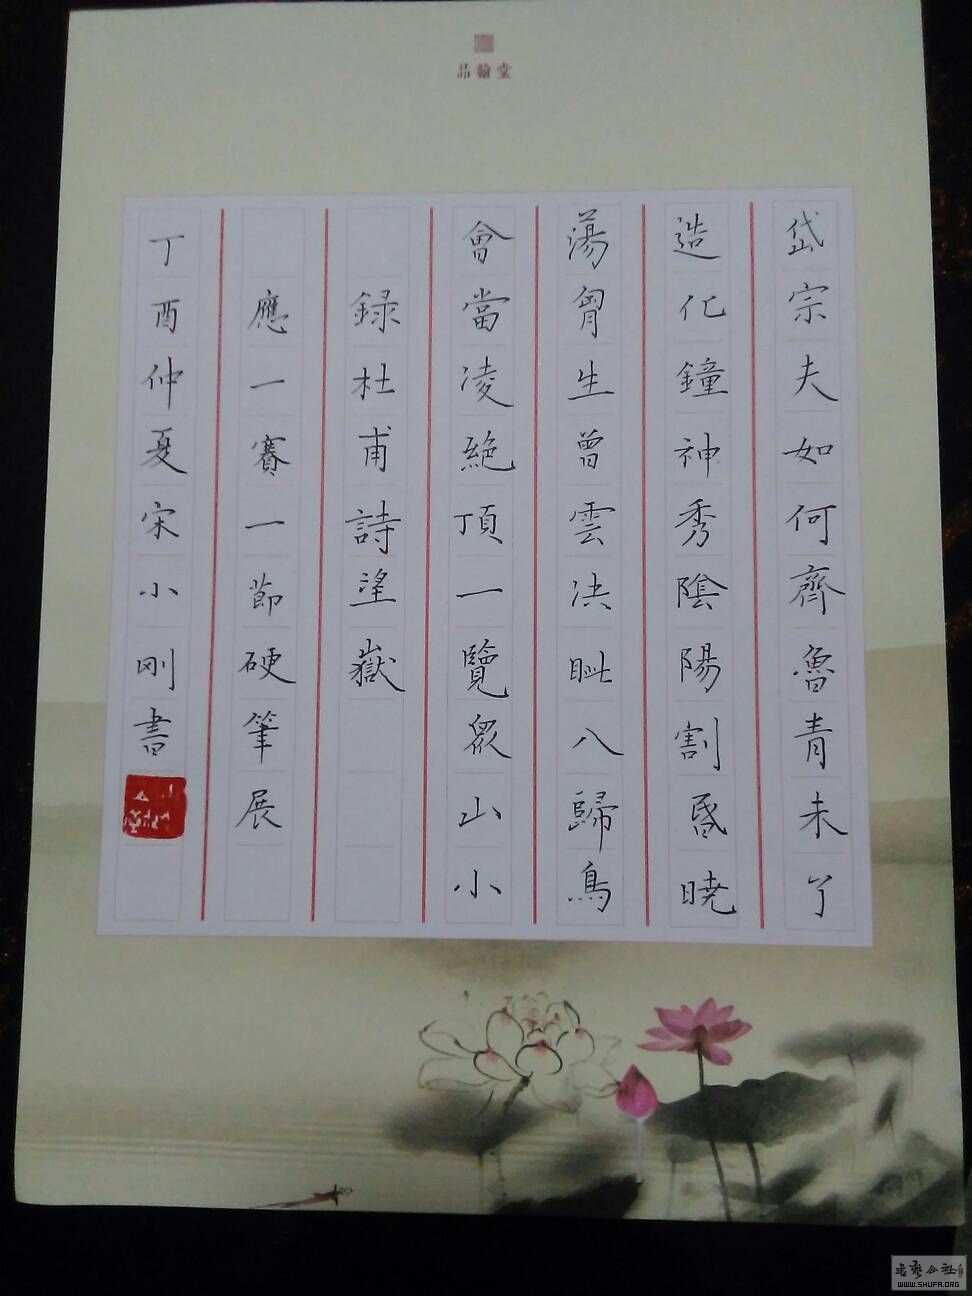 品翰堂
岱宗夫如何齊魯青未了
造化鐘神秀陰陽割昏曉
蕩胷生曾雲決眦入歸鳥
會當凌絕頂一覽眾山小
錄杜甫詩望嶽
應一賽一節硬筆展
丁酉仲夏宋小刚書
书艺公社
WWW.SHUFA.ORG